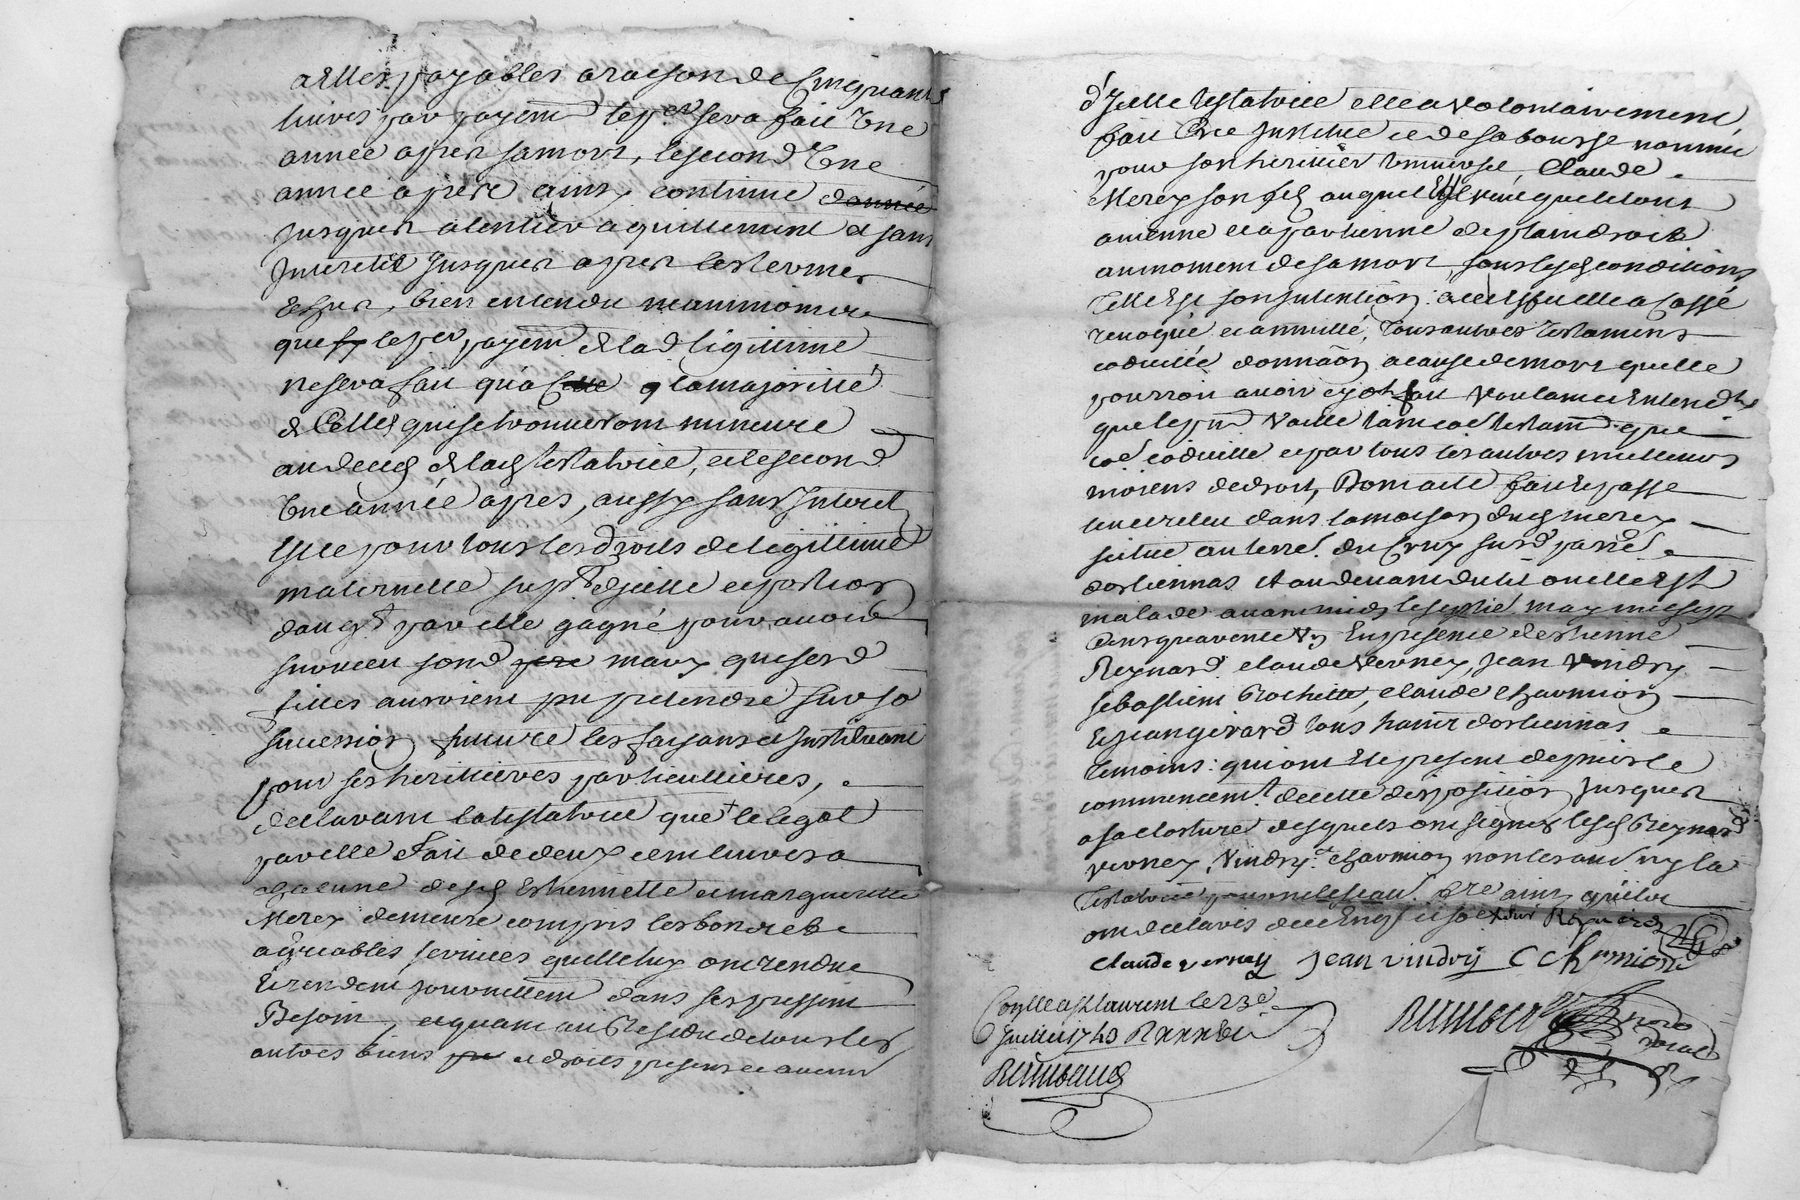 a elles payables a raison de Cinquante
livres par payem̃ le p.er sera fait Une
année apres sa mort, le second Une
année apres ainsy continue d'année
jusques a lentier aquittement et sans
Interetst jusques apres les termes
echus, bien entendu neammoins
que le per payem̃ de lad ligitime
ne sera fait qu'a la majoritté
de Celles qui se trouveront mineure
au deces de lad testatrice, et le second
Une année apres, aussy sans Interet
et ce pour tous les droits de legittime
maternelle dicelle et portion
d'augt par elle gagné pour avoir
survecu sond mary que sesd
filles auroient pu pretendre sur sa
sucession future les faisant et Instituant
pour ses heritieres particullieres,
declarant la testatrice que le legat
par elle fait de deux cent livres a
chacune desd Estiennette et marguerite
Merey demeure compris les bons et
agreables services quelle luy ont rendue
et rendent journellem̃ dans ses pressent
Besoin, et quant au Residu de tous les
autres biens et droits presens et avenir
d'Icelle testatrice elle a volontairement
fait Cree Institue et de sa bouche nommé
pour son heritier universel, Claude
Merey son fils auquel Elle veut que le tout
avienne et apartienne de plain droit
au moment de sa mort, sous lesd conditions
telle Est son Intention: a cassé
revoqué et annullé, tous autres testaments
codicille donnāon a cause de mort quelle
pourroit avoir cy dt fait voulant et Entendt
que le pnt vaille tant coe testamt que
coe codicille et par tous les autres meilleurs
moiens de droit, Dont acte fait et passe
leu et releu dans la maison dud merey
située au terre du Cruy sur d parre
dortiennas et au devant du lit ou elle Est
malade avant midy le sixie may mil sept
Cens quarente en presence d'estienne
Reynard claude verney, Jean Vindry
sebastien Rochette, claude charmion
et Jean girard tous habits dortiennas
temoins: qui ont Ete present depuis le
commencemt de cette disposition Jusques
a sa cloture desquels ont signez lesd Reynard
verney, Vindry et charmion non les autres ny la
testatrice pour ne le scavoir faire ainsy qu'ils
ont declares de ce Enqs
Claude verney Jean vindry C Charmion
Conllé a St Laurent le 23e
Juillet 1743
Reimbaud